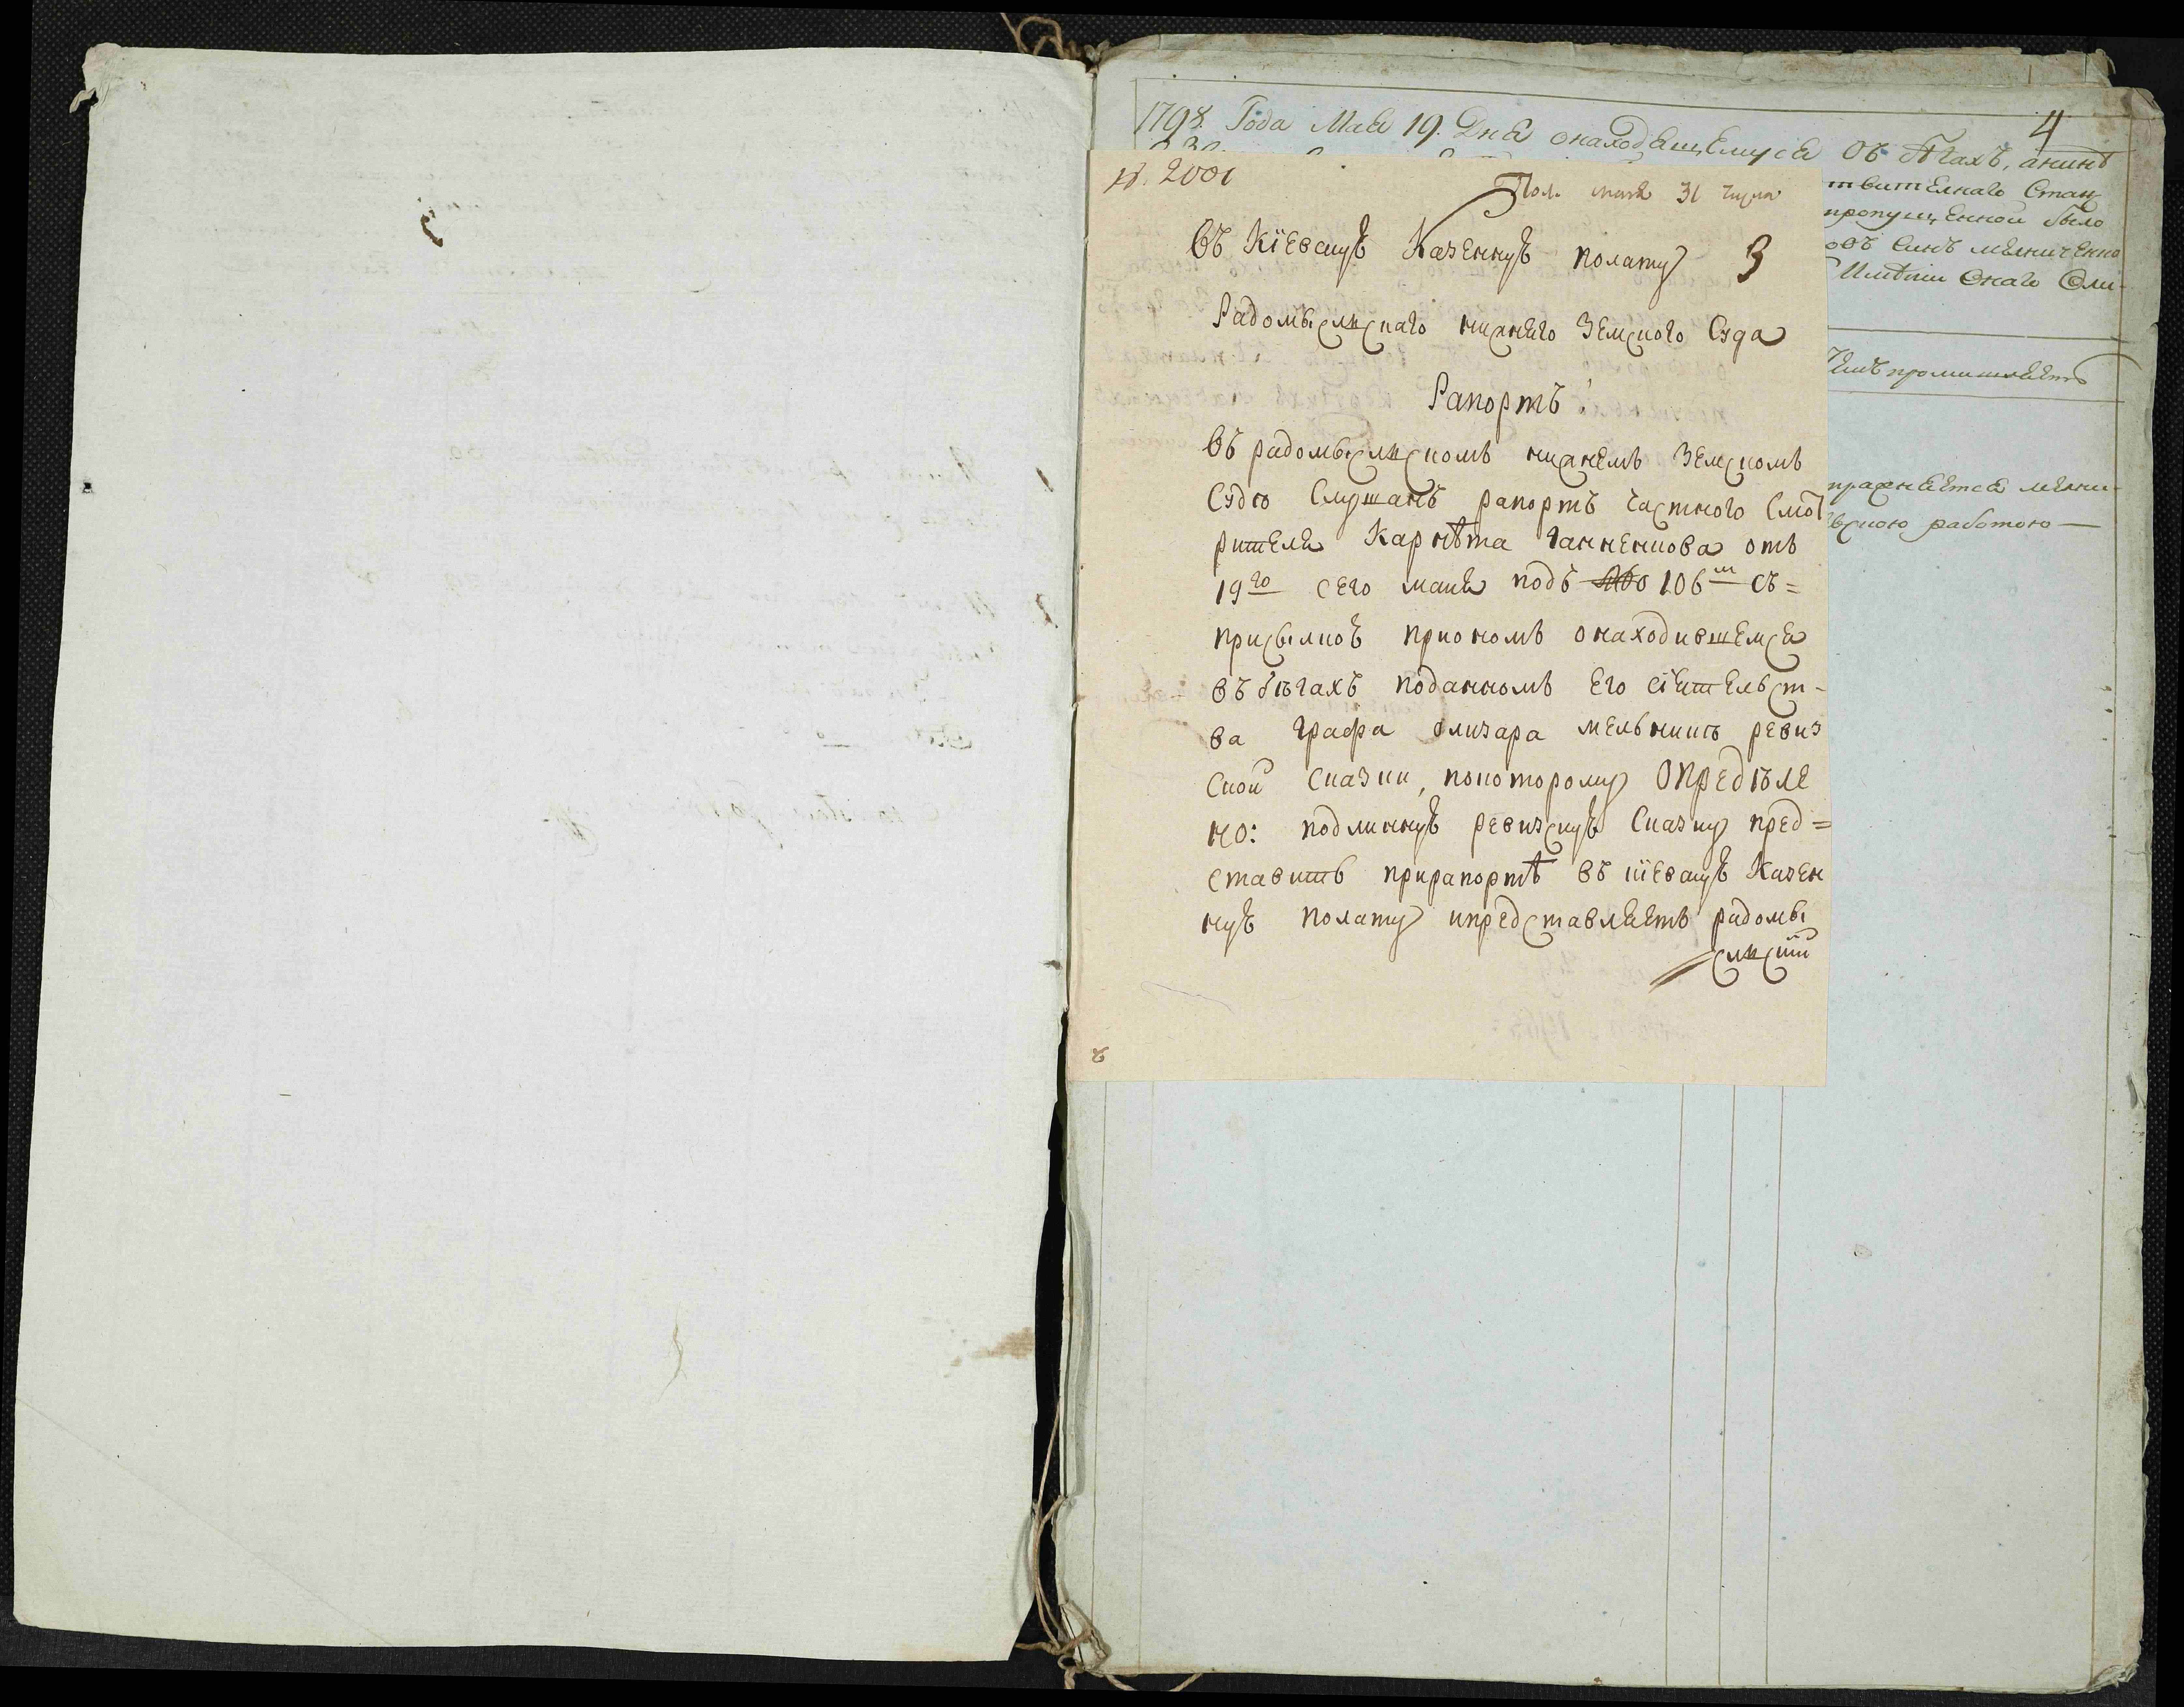 1798. Года Мая 19. Дня онаходящемуся Об Бѣгахъ, анинѣ
4
твителнаго Стат
пропущенной было
овъ Синъ мелниченко
Имѣнии Онаго Оли-
Чемъ промишляетъ
пражняетса мелни-
скою работою —
№. 2001
Пол. мая 31 числа
Въ Кіевскую Казенную полату
3
Радомыслскаго нижнего Земского Суда
Рапортъ:
Въ радомыслскомъ нижнемъ Земскомъ
Судѣ Слушанъ рапортъ Частного Смот
рителя Карнѣта Ганненкова отъ
19го сего маия подъ 106м съ=
присылкою приономъ онаходившемся
въ бѣгахъ поданномъ его сіятельст-
ва графа олизара мельникѣ ревиз
ской сказки, покоторому Опредѣле
но: подлинную ревизскую Сказку пред=
ставить прирапортѣ въ кіевскую Казен
ную полату ипредставляетъ радомы
слскій